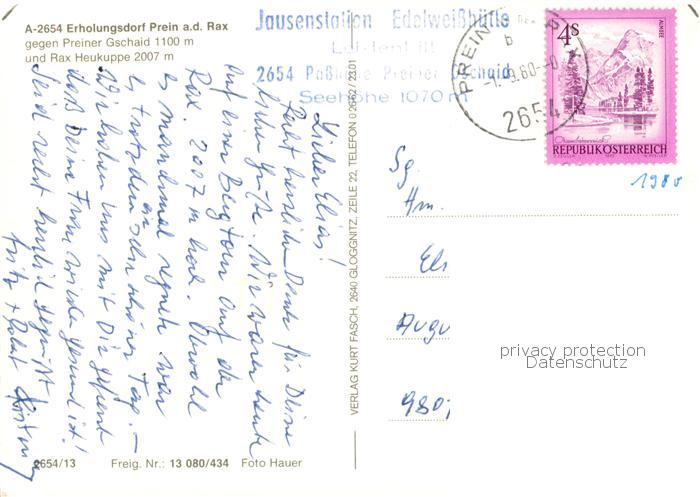 A-2654 Erholungsdorf Prein a.d. Rax
gegen Preiner Gschaid 1100 m
und Rax Heukuppe 2007 m
Jausenstation Edelweißhütte
2654 Paßhöhe Preiner Gschaid
Seehöhe 1070 m
PREIN
b
2654
4s
ALMSEE
REPUBLIK ÖSTERREICH
1980
Lieber Elias!
Recht herzlichen Dank für Deine
lieben Grüße. Wir waren heute
auf einer Bergtour auf der
Rax. 2007 m hoch. Obwohl
es manchmal regnete war
es trotzdem ein schöner Tag. –
Wir haben uns mit Dir gefreut
daß Deine Frau wieder gesund ist!
Seid recht herzlich gegrüßt
Fritz +
VERLAG KURT FASCH, 2640 GLOGGNITZ, ZEILE 22, TELEFON 0 26 62 / 23 01
Sg.
Hrn.
Eli
Augu
980;
privacy protection
Datenschutz
2654/13 Freig. Nr.: 13 080/434 Foto Hauer